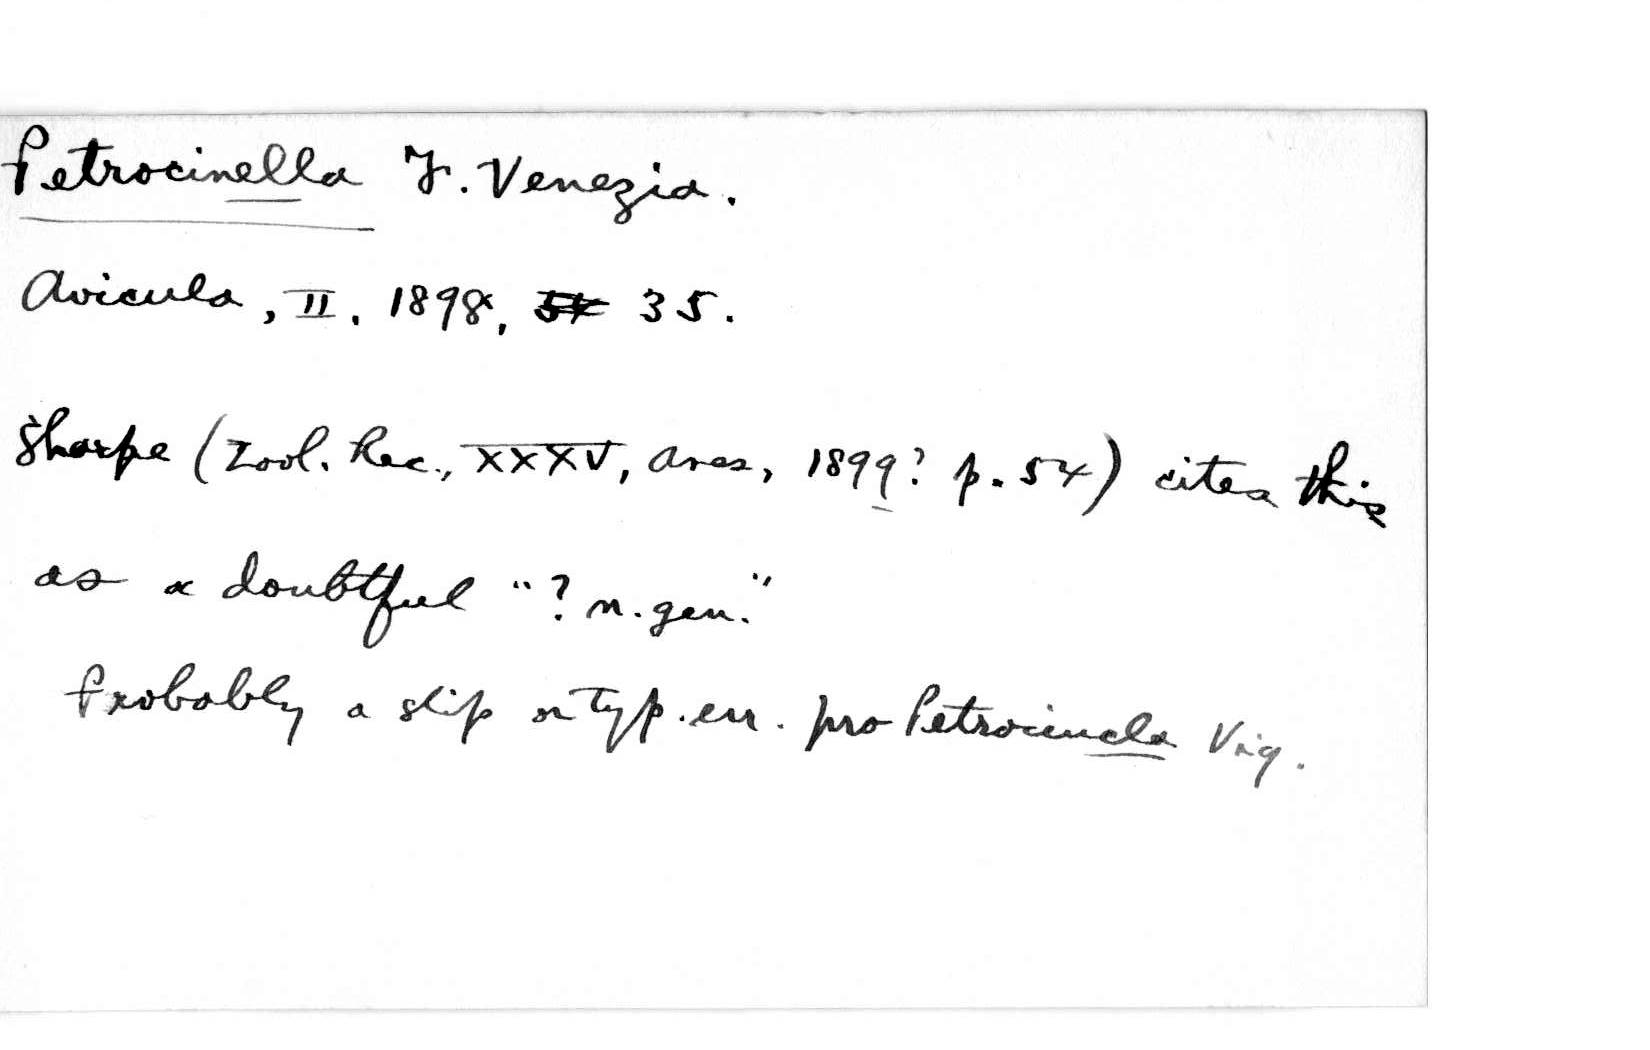 Petrocinella F. Venezia.
Avicula, II. 1898, 54 35.
Sharpe (Zool. Rec., XXXV, Aves, 1899? p. 54) cites this
as a doubtful "? n. gen."
Probably a slip or typ. err. pro Petrocincla Vig.